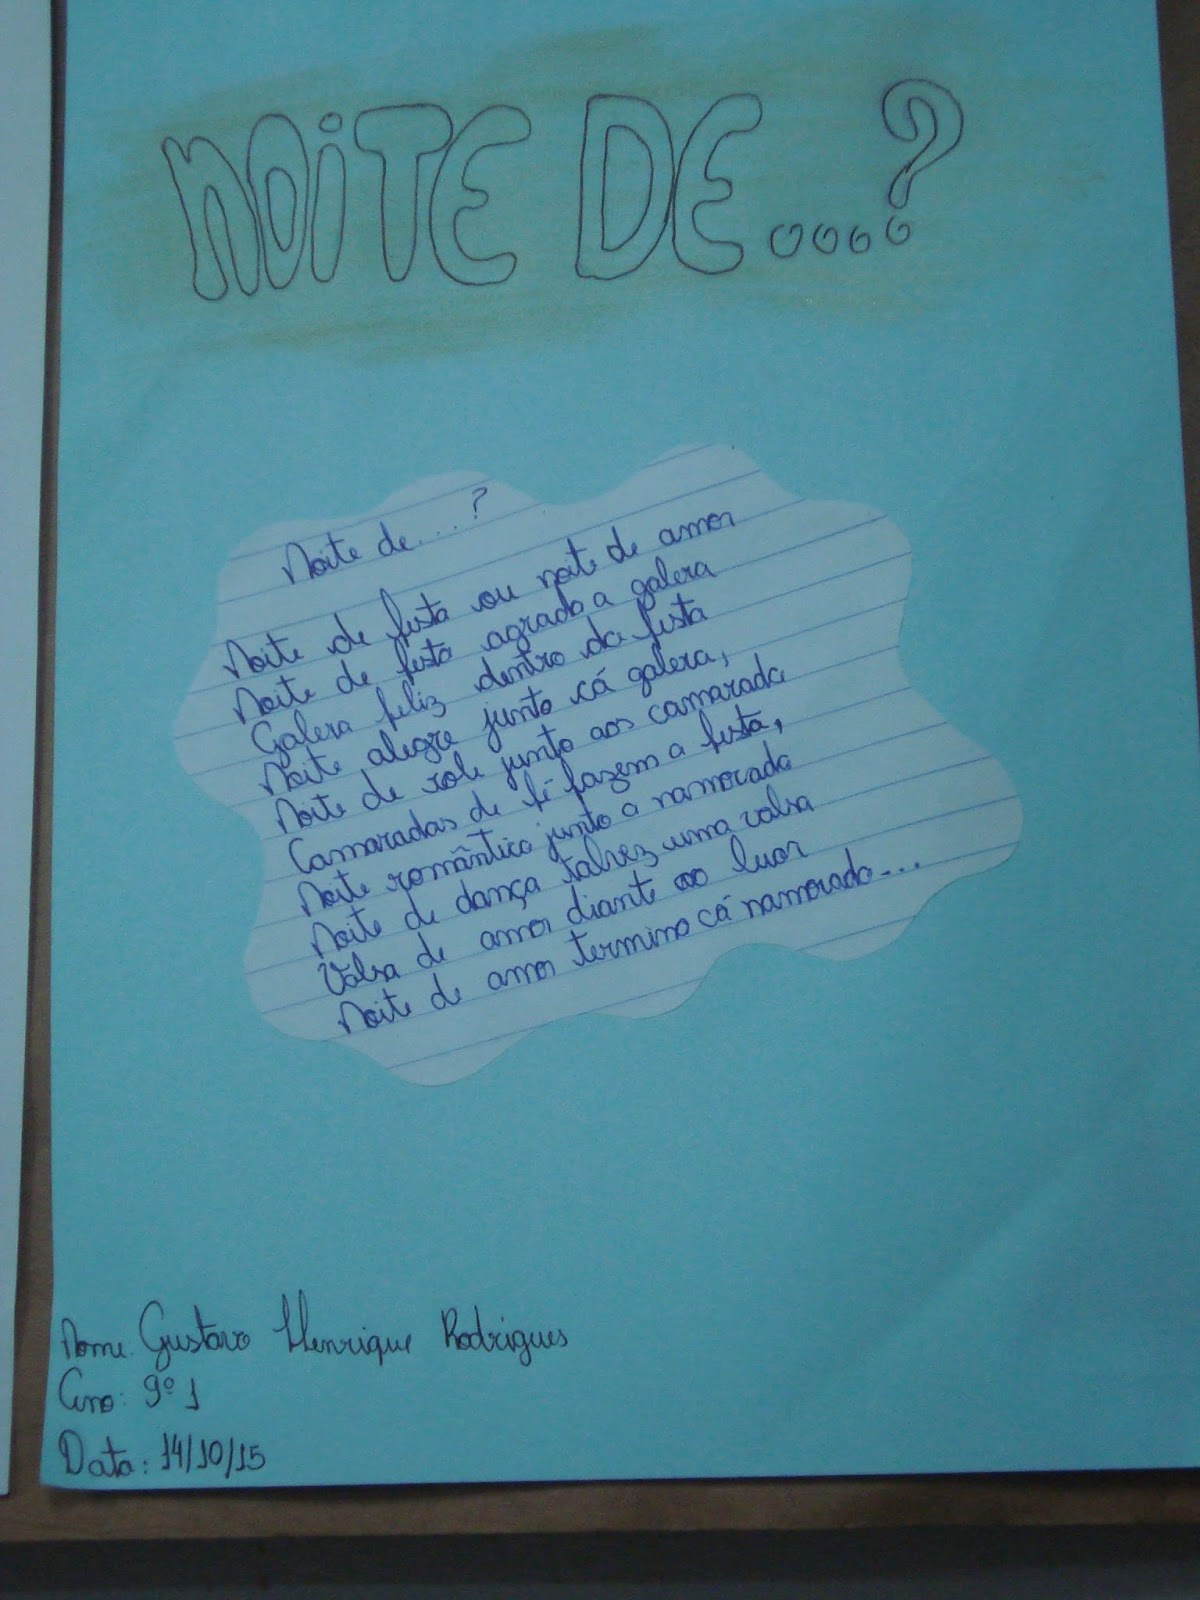 NOITE DE....?
Noite de....?
Noite de festa ou noite de amor
Noite de festa agrada a galera
Galera feliz dentro da festa
Noite alegre junto cá galera,
Noite de role junto aos camarada
Camaradas de fé fazem a festa,
Noite romântica junto a namorada
Noite de dança talvez uma valsa
Valsa de amor diante ao luar
Noite de amor termino cá namorada...
Nome: Gustavo Henrique Rodrigues
Ano: 9º 1
Data: 14/10/15